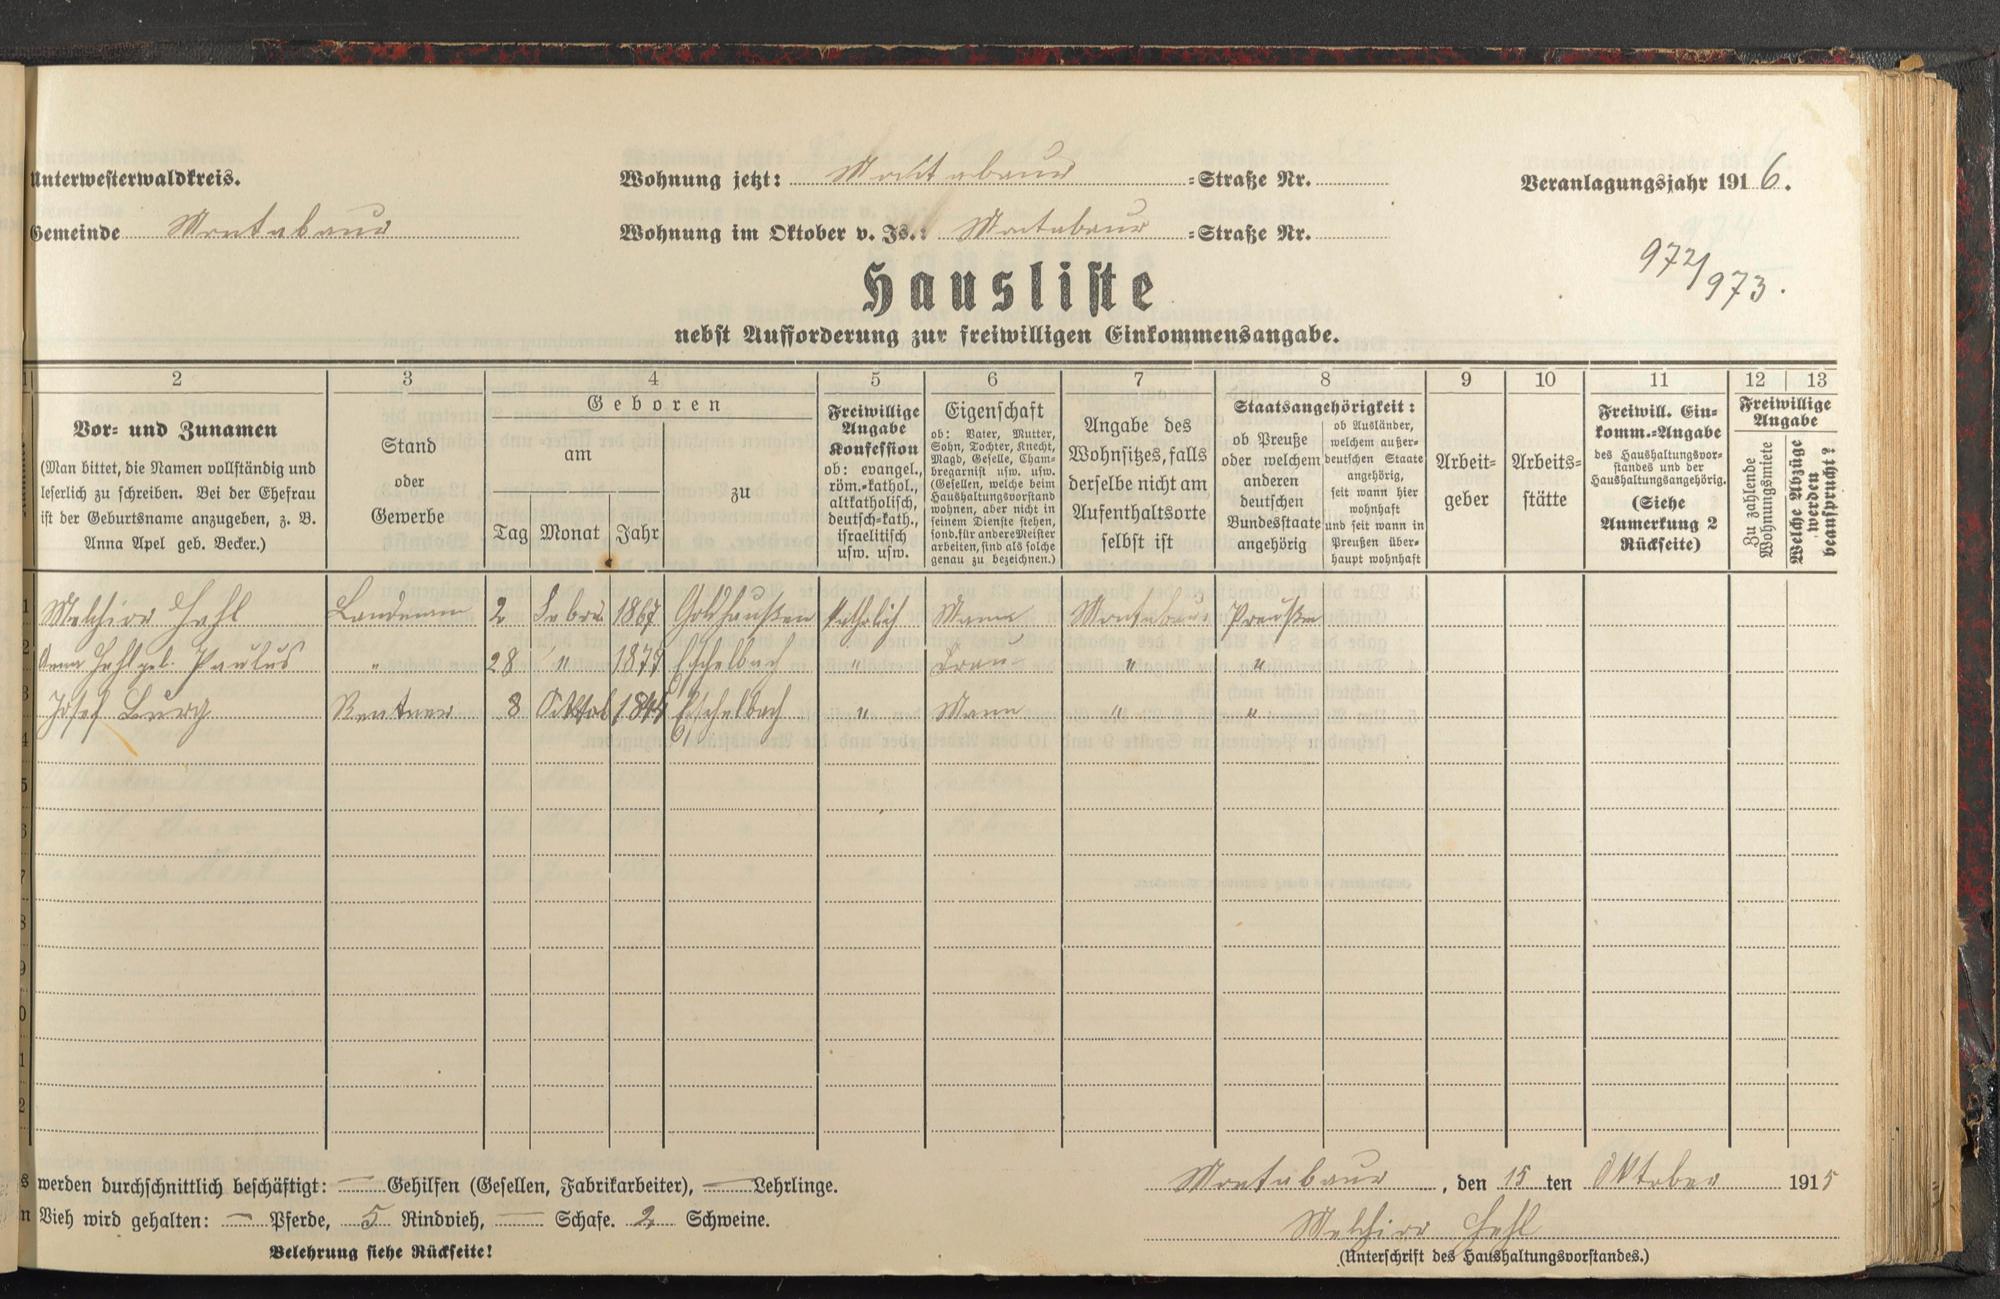 Unterwesterwaldkreis.
Wohnung jetzt: Montabaur =Straße Nr.
Veranlagungsjahr 1916.
Gemeinde Montabaur
Wohnung im Oktober v. Js.: Montabaur =Straße Nr.
972/973.
Hausliste
nebst Aufforderung zur freiwilligen Einkommensangabe.
1 2 3 4 5 6 7 8 9 10 11 12 13
Vor- und Zunamen
(Man bittet, die Namen vollständig und
leserlich zu schreiben. Bei der Ehefrau
ist der Geburtsname anzugeben, z. B.
Anna Apel geb. Becker.)
Stand
oder
Gewerbe
Geboren
am
Tag Monat Jahr
zu
Freiwillige
Angabe
Konfession
ob: evangel.,
röm.-kathol.,
altkatholisch,
deutsch-kath.,
israelitisch
usw. usw.
Eigenschaft
ob: Vater, Mutter,
Sohn, Tochter, Knecht,
Magd, Geselle, Cham-
bregarnist usw. usw.
(Gesellen, welche beim
Haushaltungsvorstand
wohnen, aber nicht in
seinem Dienste stehen,
sond. für andere Meister
arbeiten, sind als solche
genau zu bezeichnen.)
Angabe des
Wohnsitzes, falls
derselbe nicht am
Aufenthaltsorte
selbst ist
Staatsangehörigkeit:
ob Preuße
oder welchem
anderen
deutschen
Bundesstaate
angehörig
ob Ausländer,
welchem außer-
deutschen Staate
angehörig,
seit wann hier
wohnhaft
und seit wann in
Preußen über-
haupt wohnhaft
Arbeit-
geber
Arbeits-
stätte
Freiwill. Ein-
komm.-Angabe
des Haushaltungsvor-
standes und der
Haushaltungsangehörig.
(Siehe
Anmerkung 2
Rückseite)
Freiwillige
Angabe
Zu zahlende
Wohnungsmiete
Welche Abzüge
werden
beansprucht?
1 Melchior Hehl Landmann 2 Febru 1867 Goldhausen katholich Mann Montabaur Preuße
2 Anna Hehl geb. Paulus " 28 " Eschelbach " Frau " "
3 Josef Bürg Rentner 8 Oktob Eschelbach " Mann " "
4
5
6
7
8
9
0
1
2
s werden durchschnittlich beschäftigt: — Gehilfen (Gesellen, Fabrikarbeiter), — Lehrlinge.
n Vieh wird gehalten: — Pferde, 5 Rindvieh, — Schafe. 2 Schweine.
Belehrung siehe Rückseite!
Montabaur, den 15 ten Oktober 1915
Melchior Hehl
(Unterschrift des Haushaltungsvorstandes.)